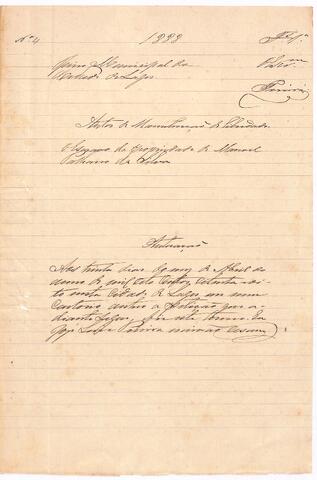 Nº 4 1888 Fl. 1ª
Juizo Municipal da
Cidade de Lages
Escr.am
Pereira
Autos de Manutenção de Liberdade
de Propriedade de Manoel
da Silva
Autuação
Aos trinta dias do mez de Abril do
anno de mil oito centos oitenta e oi-
to nesta Cidade de Lages em meu
Cartorio autuo a Petição que a-
diante segue, faço este termo. Eu
José Luis Pereira escrivão escrevi